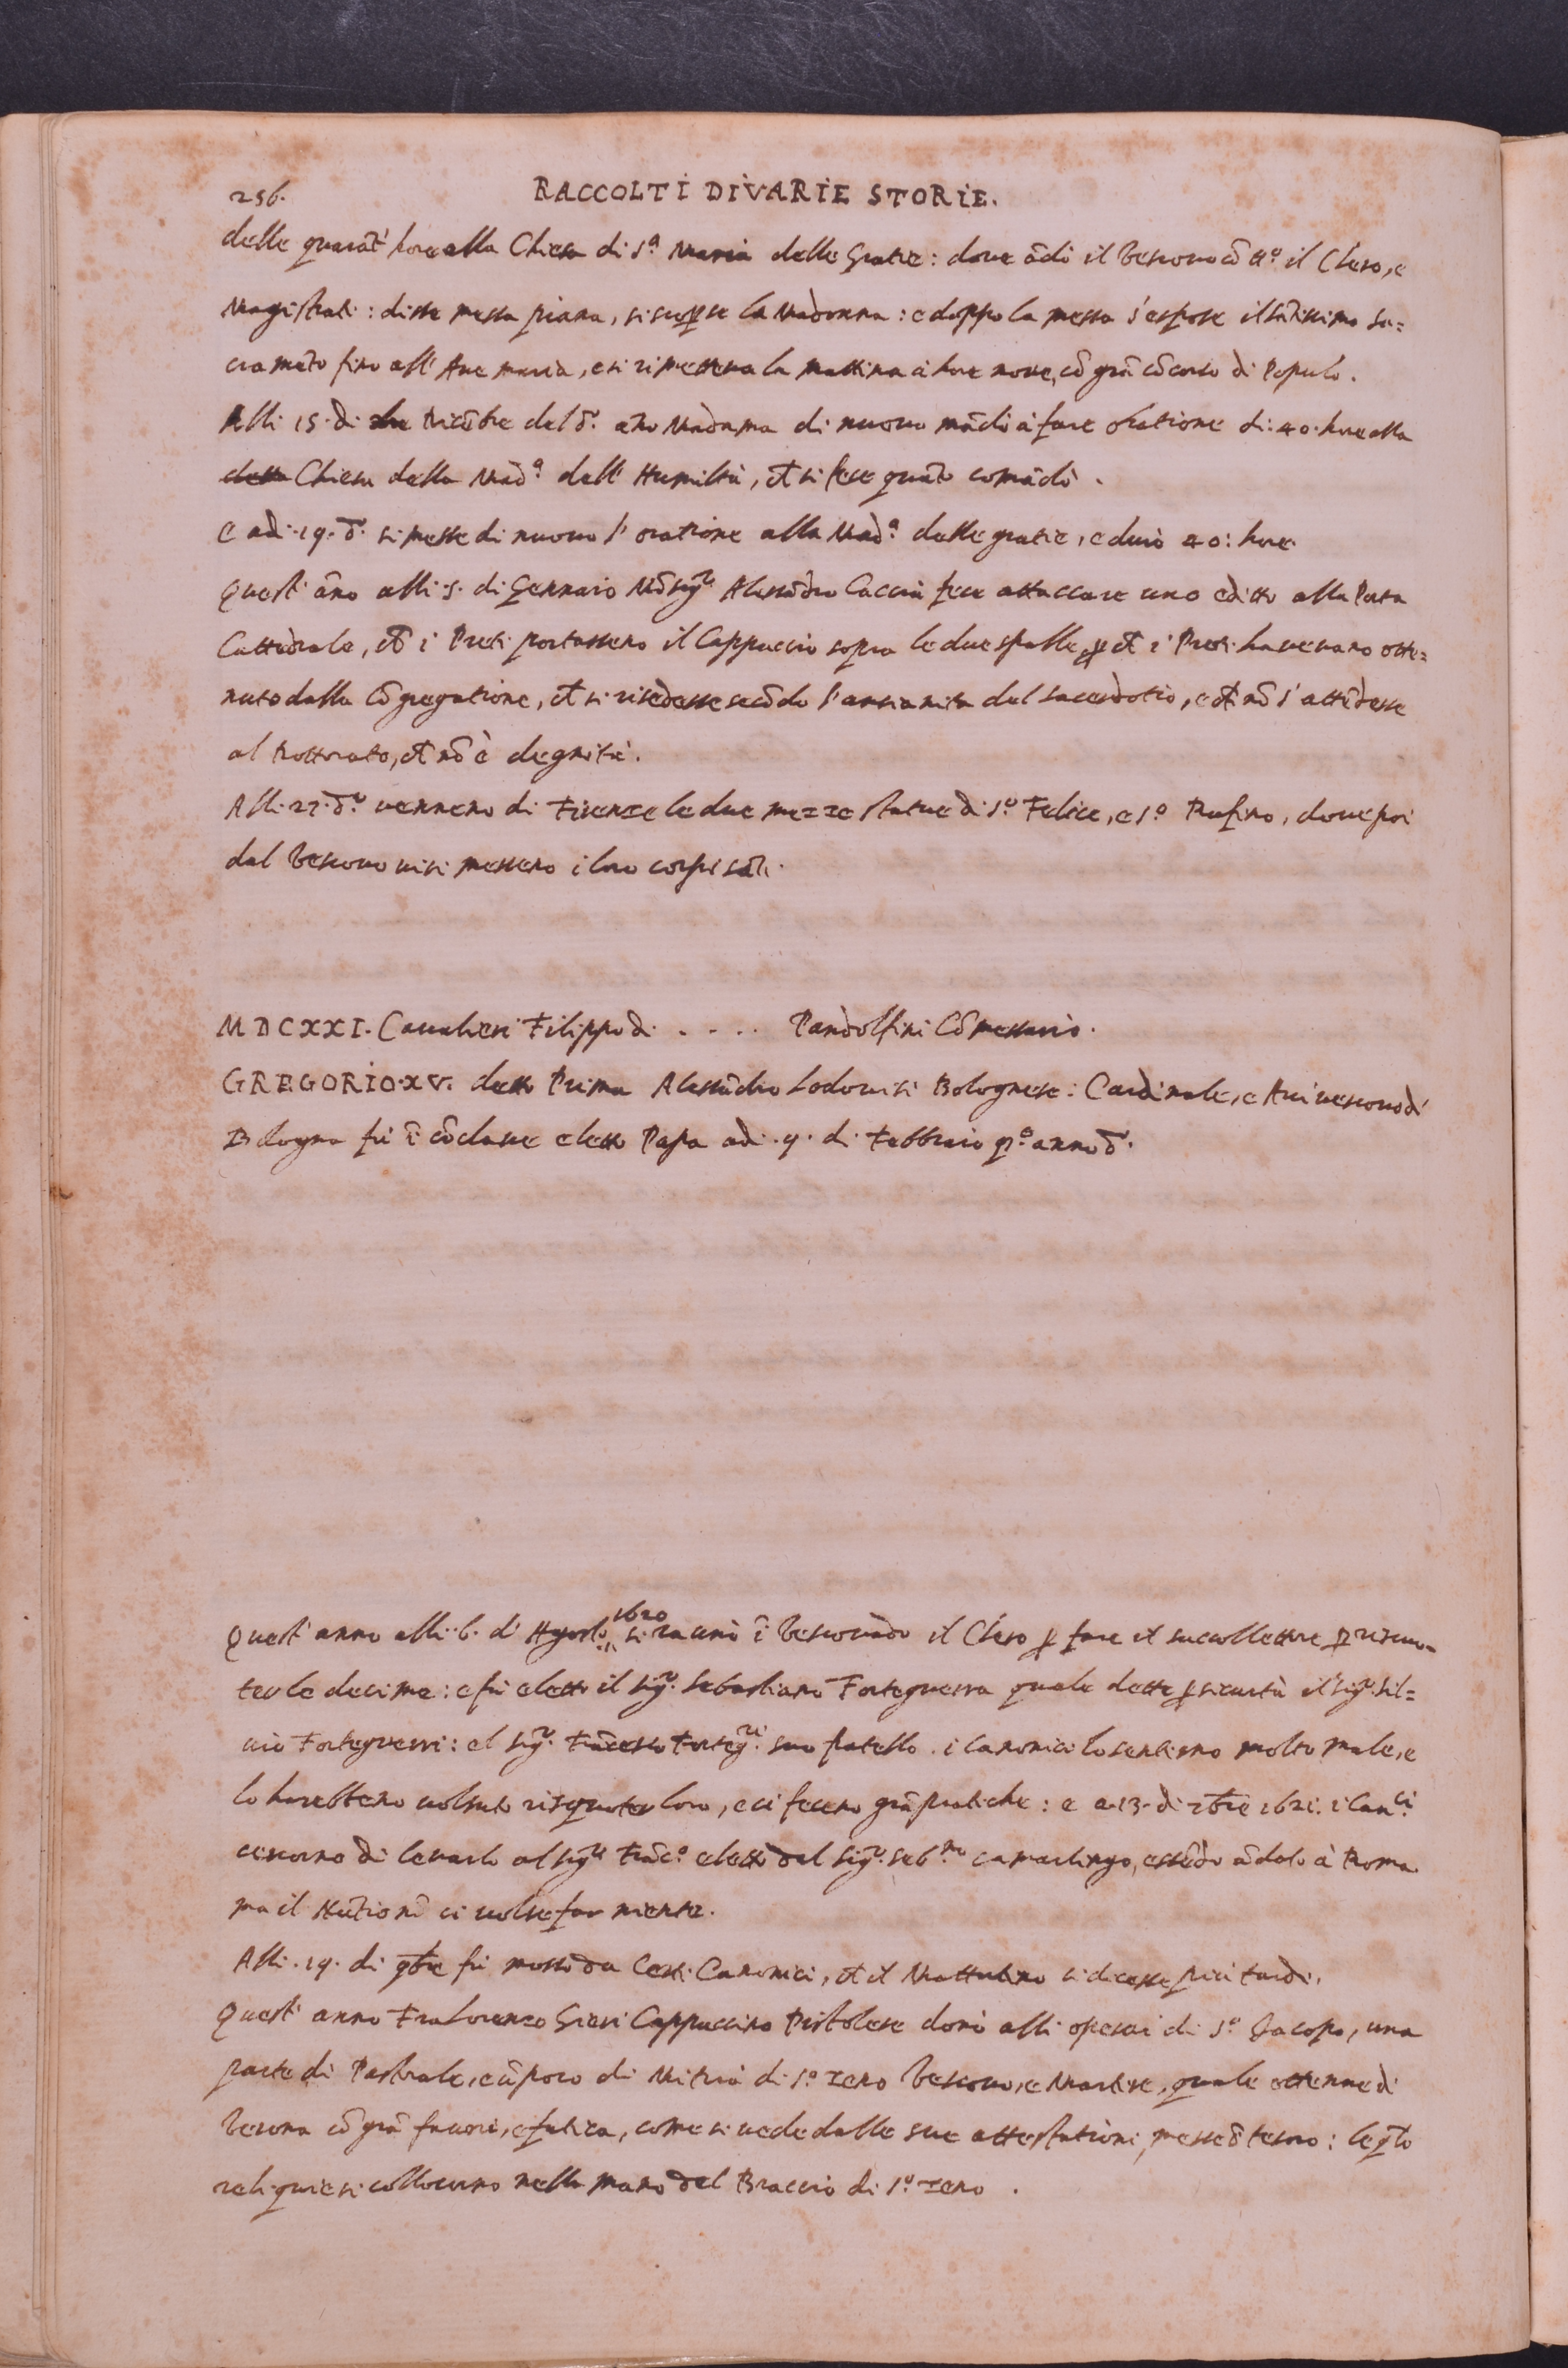 256. RACCOLTI DI VARIE STORIE.
delle quarãt' hore alla Chiesa di S.ª Maria delle Gratie: dove ãdò il Vescovo cõ tt.º il Clero, e
Magistrati: disse messa piana, si scoperse la Madonna: e doppo la messa s'espose il sãtissimo Sa=
cramẽto fino all' Ave maria, e si rimetteva la mattina à hore nove, cõ grã cõcorso di Populo.
Alli 15. di Dicẽbre del d.º año Madama di nuovo mãdò à fare oratione di 40. hore alla
detta Chiesa della Mad.ª dell' Humiltà, et si fece quãto comãdò.
E adi. 19. d.º si messe di nuovo l' oratione alla Mad.ª delle gratie, e durò 40: hore.
Quest' ãno alli 5. di Gennaio Mõsig.re Alessãdro Caccia fece attaccare uno editto alla Porta
Cattedrale, ch̃ i Preti portassero il Cappuccio sopra le due spalle, p ch̃ i Preti havevano otte=
nuto dalla Cõgregatione, ch̃ si risedesse secõdo l'anzianità del sacerdotio, e ch̃ nõ s'attẽdesse
al Dottorato, ch̃ nõ è degnità.
Alli. 22. d.º vennero di Firenze le due mezze statue di S.º Felice, e S.º Rufino, dove poi
dal Vescovo vi si messero i loro corpi sãti.
MDCXXI. Cavalieri Filippo di . . . . Pandolfini Cõmessario.
GREGORIO. XV. detto Prima Alessãdro Lodovisi Bolognese: Cardinale, e Arcivescovo di
Bologna fù ĩ cõclave eletto Papa adi. 9. di Febbraio p.º anno d.º
Quest' anno alli. 6. d' Agosto 1620 si raunò ĩ Vescovado il Clero p fare il succollettore p riscuo=
ter le decime: e fù eletto il sig.r Sebastiano Forteguerra quale dette p sicurtà il sig.r Sil=
vio Forteguerri: e l sig.r Frãcesco Forteg.ri suo fratello. i Canonici lo sentirno molto male, e
lo harebbero voluto risquoter loro, e ci fecero grã pratiche: e a 13. di xbre 1621. i Can.ci
cercorno di levarlo al sig.re Frãc.º eletto dal sig.r Seb.no camarlingo, essẽdo ãdato à Roma
ma il Nũtio nõ ci volse far niente.
Alli. 19. di 9bre fù mosso da Certi Canonici, ch̃ il Mattutino si dicesse più tardi.
Quest' anno Fra Lorenzo Gieri Cappuccino Pistolese donò alli operai di S.º Jacopo, una
parte di Pastorale, e ũ poco di Mitria di S.º Zeno Vescovo, e Martire, quale ottenne di
Verona cõ grã favori, e fatica, come si vede dalle sue attestationi, messe ĩ tesoro: le q̃li
reliquie si collocorno nella mano del Braccio di S.º Zeno.